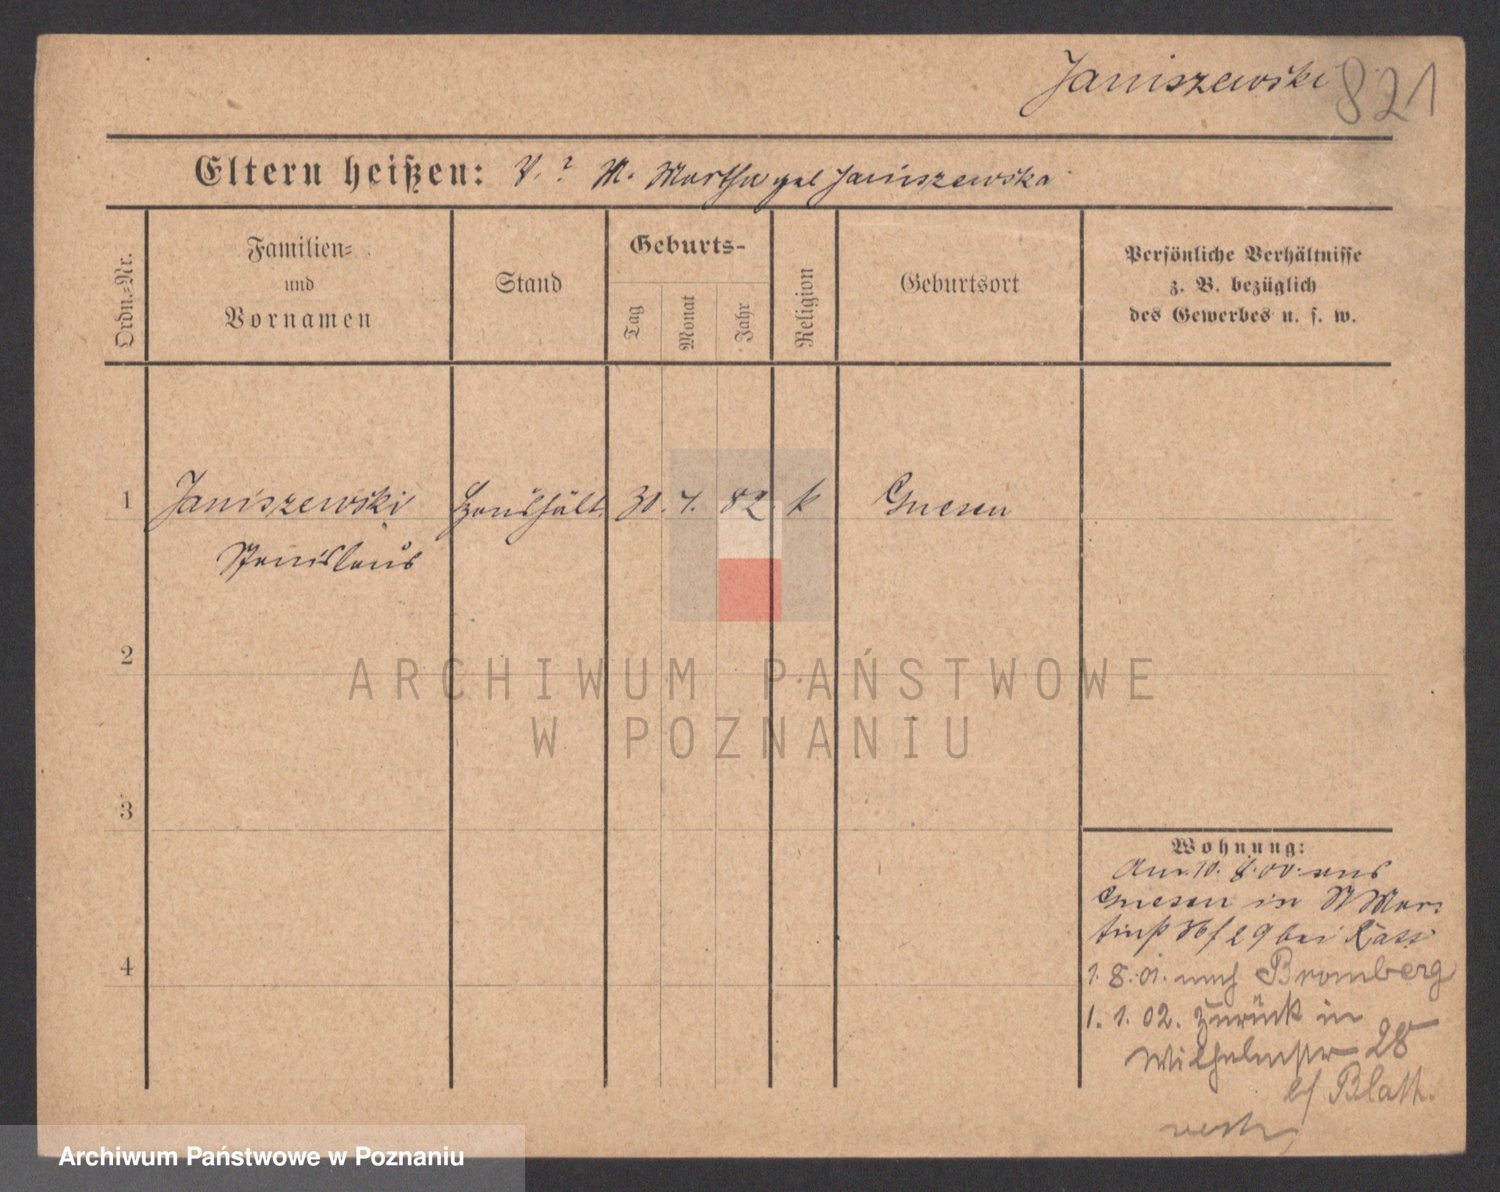 Janiszewski 821
Eltern heißen: V. ? M. Martha geb Janiszewska
Ordn.-Nr.
Familien-
und
Vornamen
Stand
Geburts-
Tag
Monat
Jahr
Religion
Geburtsort
Persönliche Verhältnisse
z. B. bezüglich
des Gewerbes u. s. w.
1 Janiszewski Haushält. 30. 7. 82 k Gnesen
Stanislaus
2
3
4
ARCHIWUM PAŃSTWOWE
W POZNANIU
Wohnung:
Am 10. 8. 00. aus
Gnesen in St Mar-
tinstr 29 bei
1. 8. 01. nach Bromberg
1. 1. 02. zurück in
Wilhelmstr 28
b/ Blath.
Archiwum Państwowe w Poznaniu